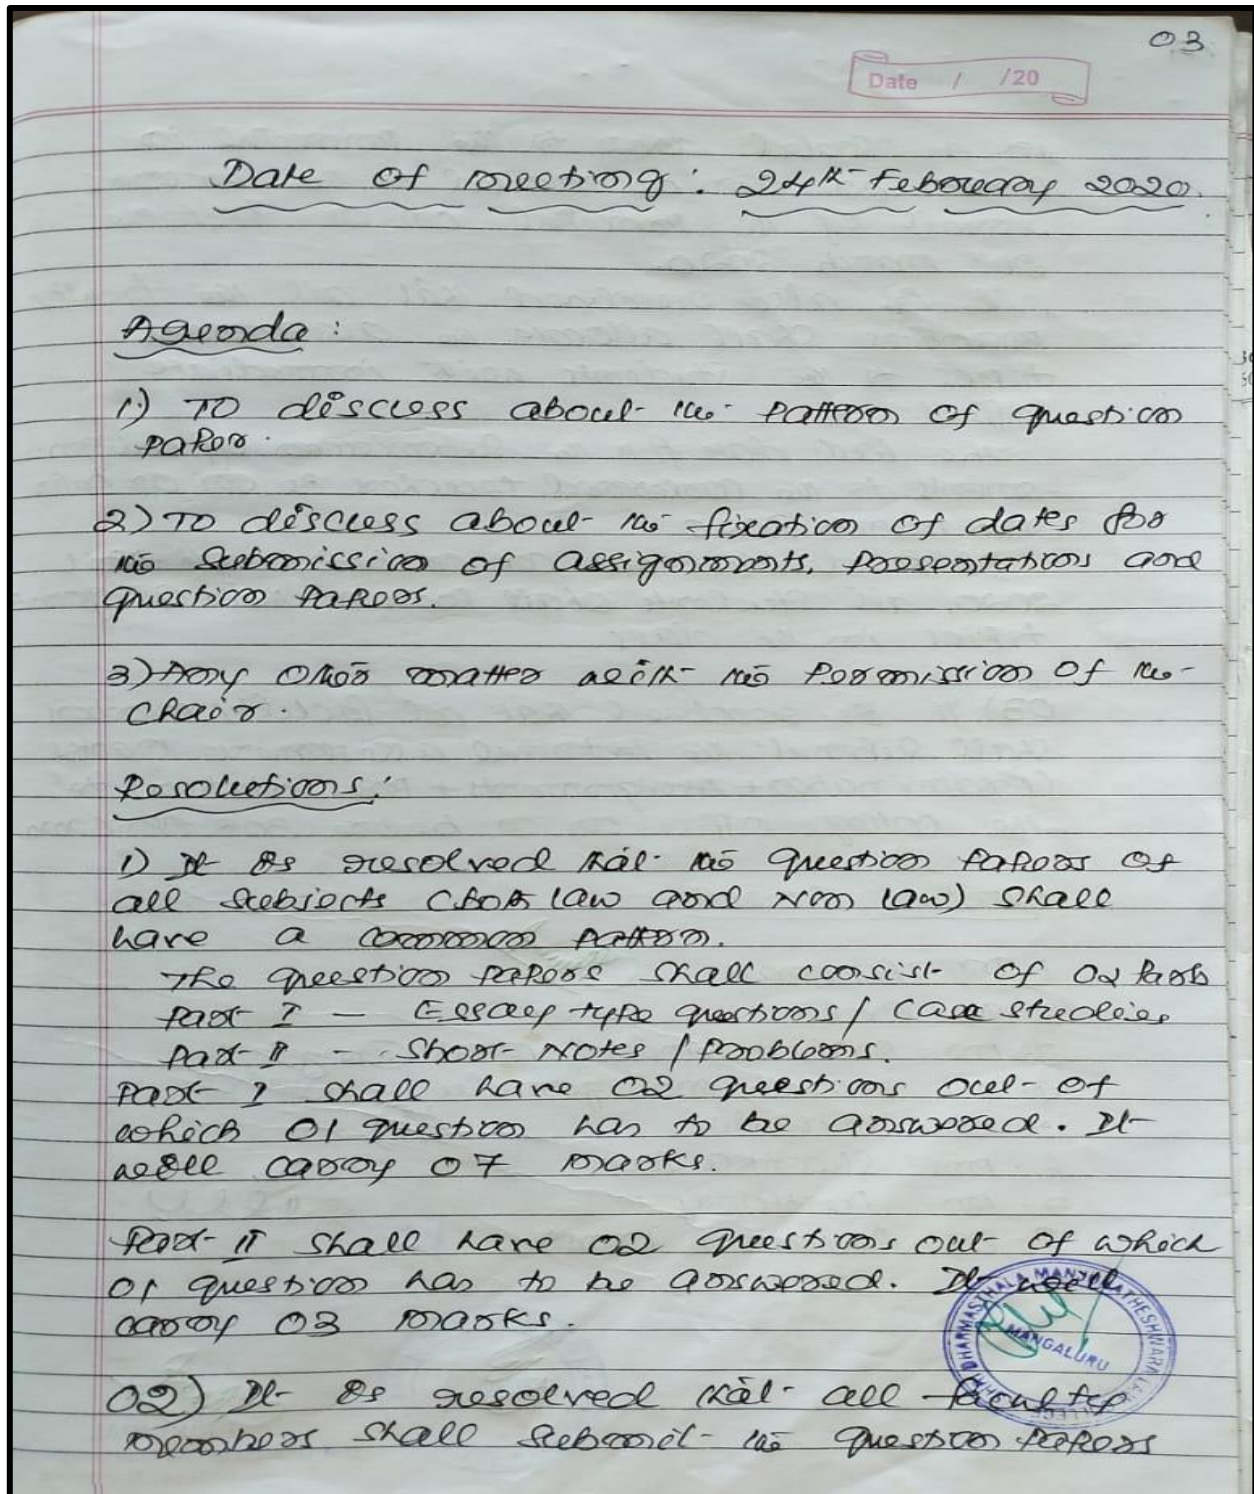 03
Date / /20
Date of meeting : 24th February 2020.
Agenda :
1.) To discuss about the pattern of question
paper.
2) To discuss about the fixation of dates for
the submission of assignments, presentations and
question papers.
3) Any other matter with the permission of the
chair.
Resolutions :
1) It is resolved that the question papers of
all subjects (both law and non law) shall
have a common pattern.
The question papers shall consist of 02 parts
Part I – Essay type questions / case studies
Part II – Short notes / problems.
Part I shall have 02 questions out of
which 01 question has to be answered. It
will carry 07 marks.
Part II shall have 02 questions out of which
01 question has to be answered. It will
carry 03 marks.
SHRI DHARMASTHALA MANJUNATHESHWARA LAW COLLEGE
MANGALURU
02) It is resolved that all faculty
members shall submit the question papers